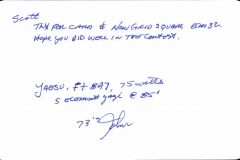 Scott
Tnx for card & New Grid Square EM32.
Hope you did well in the contest.
Yaesu, FT 847, 75 watts
5 element yagi @ 85'
73's John